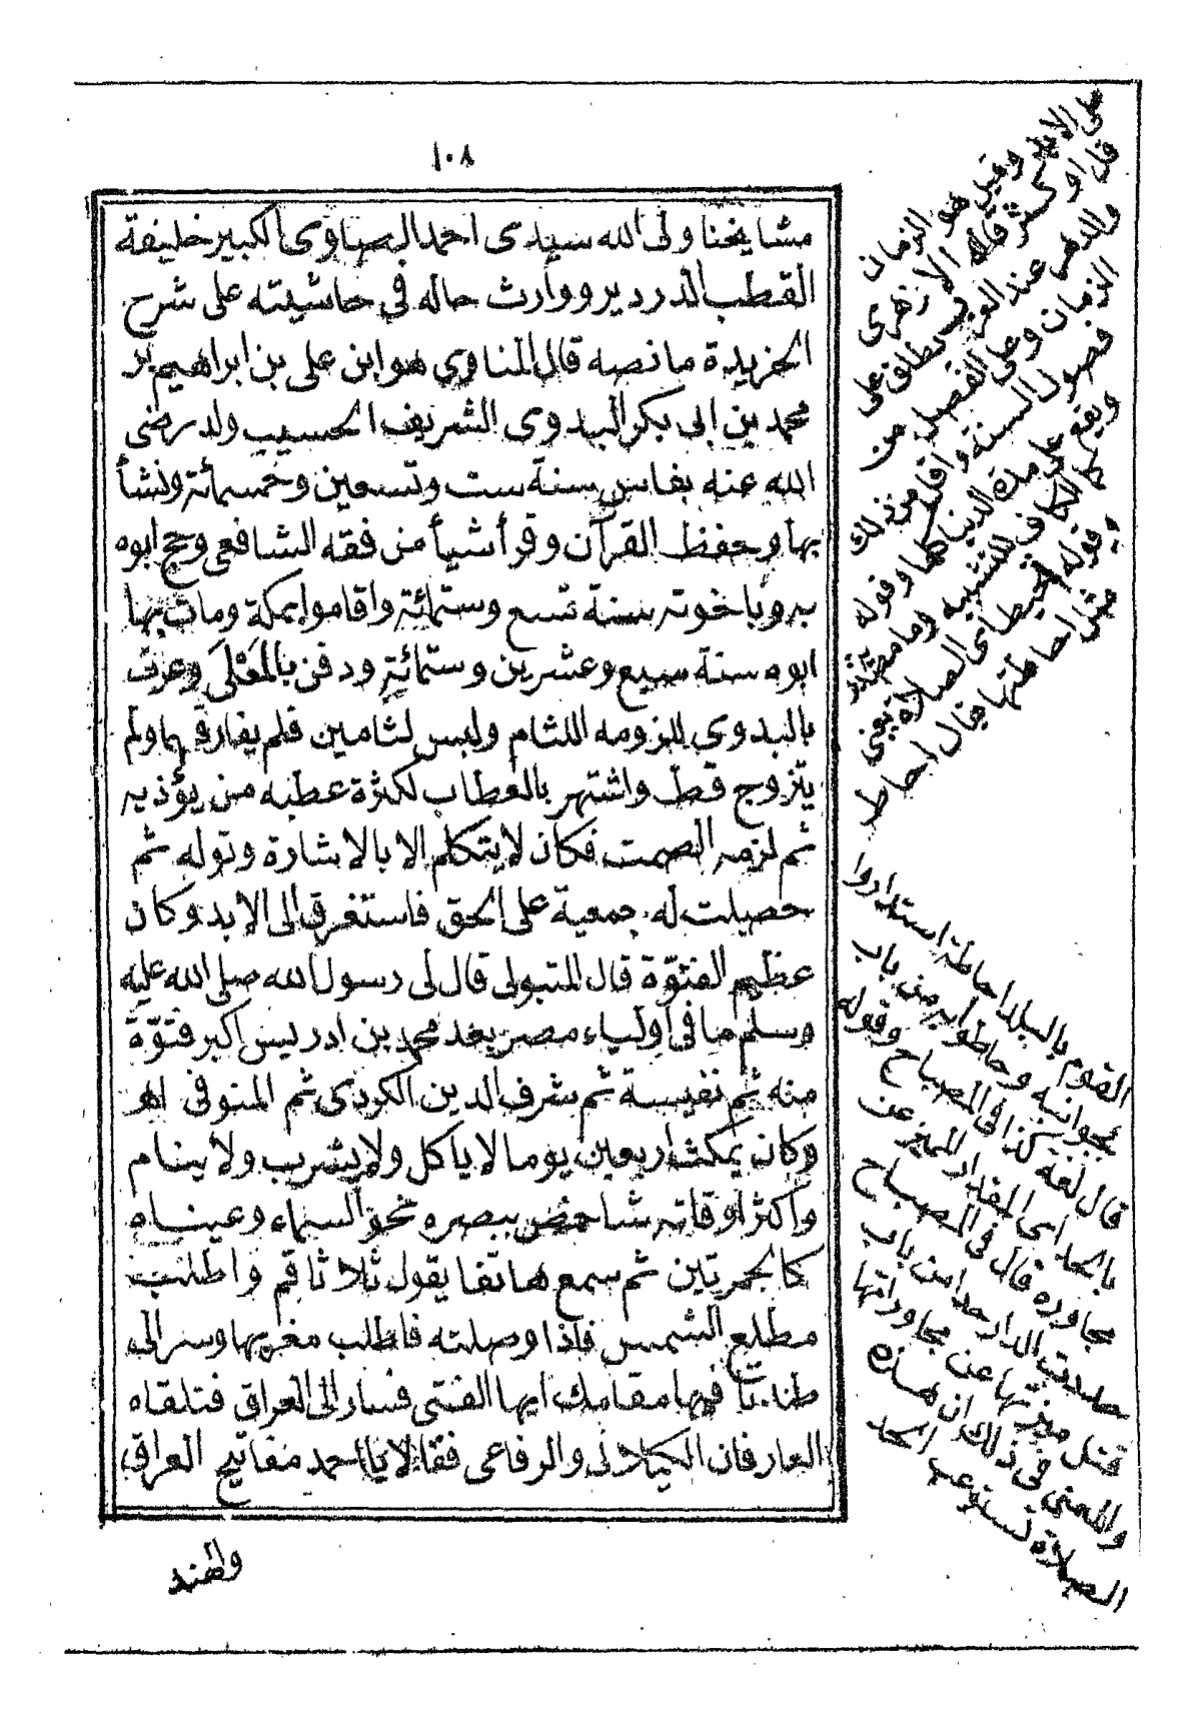 ١٠٨
مشايخنا ولى الله سيدى احمد الصاوى الكبير خليفة
القطب الدردير ووارث حاله فى حاشيته على شرح
الخريدة ما نصه قال المناوى هو ابن على بن ابراهيم بن
محمد بن ابى بكر البدوى الشريف الحسيب ولد رضى
الله عنه بفاس سنة ست وتسعين وخمسمائة ونشأ
بها وحفظ القرآن وقرأ شيأ من فقه الشافعى وحج ابوه
به وباخوته سنة تسع وستمائة واقاموا بمكة ومات بها
ابوه سنة سبع وعشرين وستمائة ودفن بالمَعْلَى وعرف
بالبدوي للزومه اللثام ولبس لثامين فلم يفارقهما ولم
يتزوج قط واشتهر بالعطاب لكثرة عطبه من يؤذيه
ثم لزمه الصمت فكان لا يتكلم الا بالاشارة وتوله ثم
حصلت له جمعية على الحق فاستغرق الى الابد وكان
عظيم الفتوّة قال المتبولى قال لى رسول الله صلى الله عليه
وسلم ما فى اولياء مصر بعد محمد بن ادريس اكبر فتوّة
منه ثم نفيسة ثم شرف الدين الكردى ثم المنوفى اهـ
وكان يمكث اربعين يوما لا ياكل ولا يشرب ولا ينام
واكثر اوقاته شاخص ببصره نحو السماء وعيناه
كالجمرتين ثم سمع هاتفا يقول ثلاثا قم واطلب
مطلع الشمس فاذا وصلته فاطلب مغربها وسر الى
طندتا فيها مقامك ايها الفتى فسار الى العراق فتلقاه
العارفان الكيلانى والرفاعى فقالا يا احمد مفاتيح العراق
والهند
على الابد وقيل هو الزمان
قل او كثر قاله الازهرى
والدهر عند العرب يطلق على
الزمان وعلى الفصل من
فصول السنة واقل من ذلك
ويقع على مدة الدنيا كلها وقوله
كما الكاف للتشبيه وما مصدرية
وقوله تحيط اى الصلاة يعنى
مثل احاطتها يقال احاط
القوم بالبلد احاطة استداروا
بجوانبه وحاطوا به من باب
قال لغة كذا فى المصباح وقوله
بالحد اى المقدار المميز عن
مجاوره قال فى المصباح
حددت الدار حدا من باب
قتل ميزتها عن مجاوراتها
والمعنى فى ذلك ان هذه
الصلاة تستوعب الحد